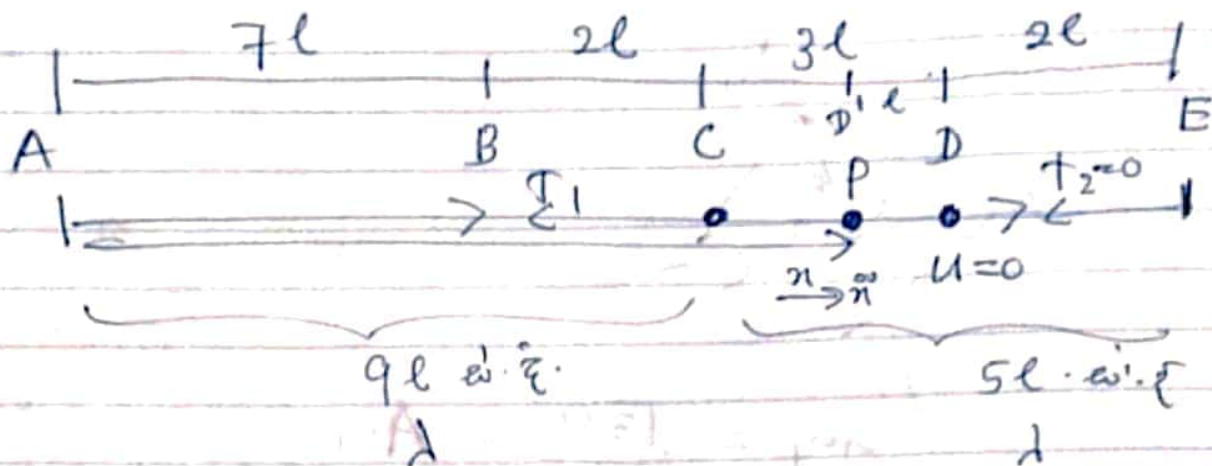 7l 2l 3l 2l
A B C D' l D E
T1 P T2=0
x → ẍ u=0
9l ස්. දි. 5l. ස්. දි
λ λ